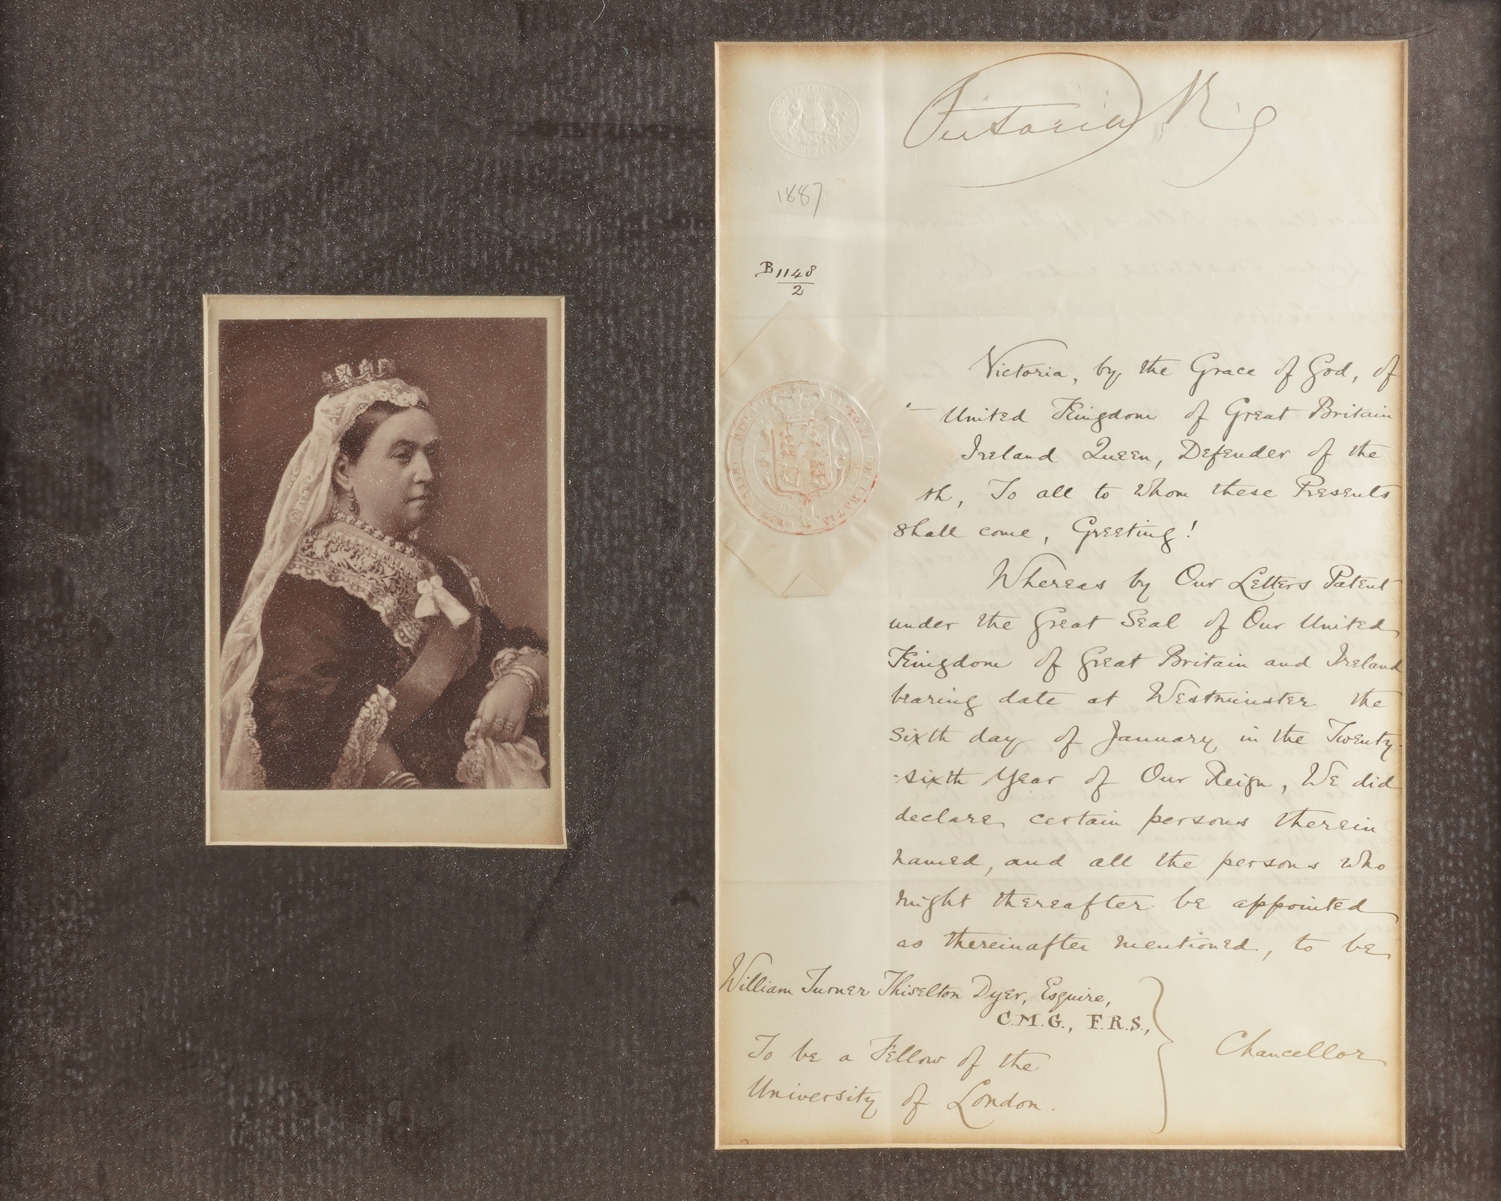 Victoria R. g
1887
B 1148
2
Victoria, by the Grace of God, of
United Kingdom of Great Britain
Ireland Queen, Defender of the
th, To all to Whom these Presents
shall come, Greeting!
Whereas by Our Letters Patent
under the Great Seal of Our United
Kingdom of Great Britain and Ireland
bearing date at Westminster the
sixth day of January in the Twenty-
-sixth Year of Our Reign, We did
declare certain persons therein
named, and all the persons who
might thereafter be appointed
as thereinafter mentioned, to be
William Turner Thiselton Dyer, Esquire,
C.M.G., F.R.S.,
To be a Fellow of the
University of London.
Chancellor